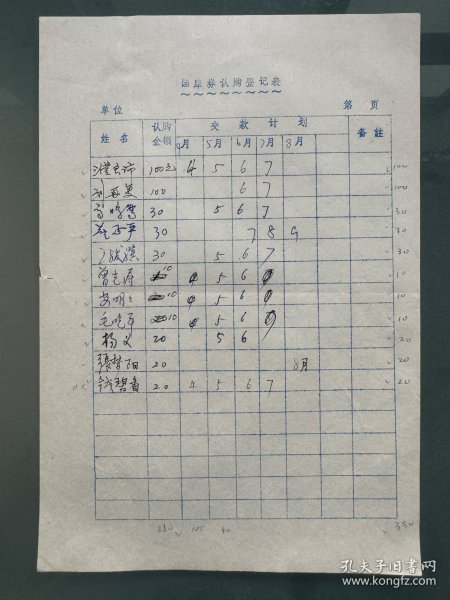 国库券认购登记表
单位 第 页
姓名 认购金额 交款计划 备注
4月 5月 6月 7月 8月
100元 4 5 6 7 100
100 6 7 100
30 5 6 7 30
30 7 8 9 30
30 5 6 7 30
曾克海 10 4 5 6 10
10 4 5 6 10
毛晓平 10 4 5 6 10
杨义 20 5 6 20
张梦阳 20 8月 20
钱碧香 20 4 5 6 7 20
380 105 40 380
孔夫子旧书网
www.kongfz.com